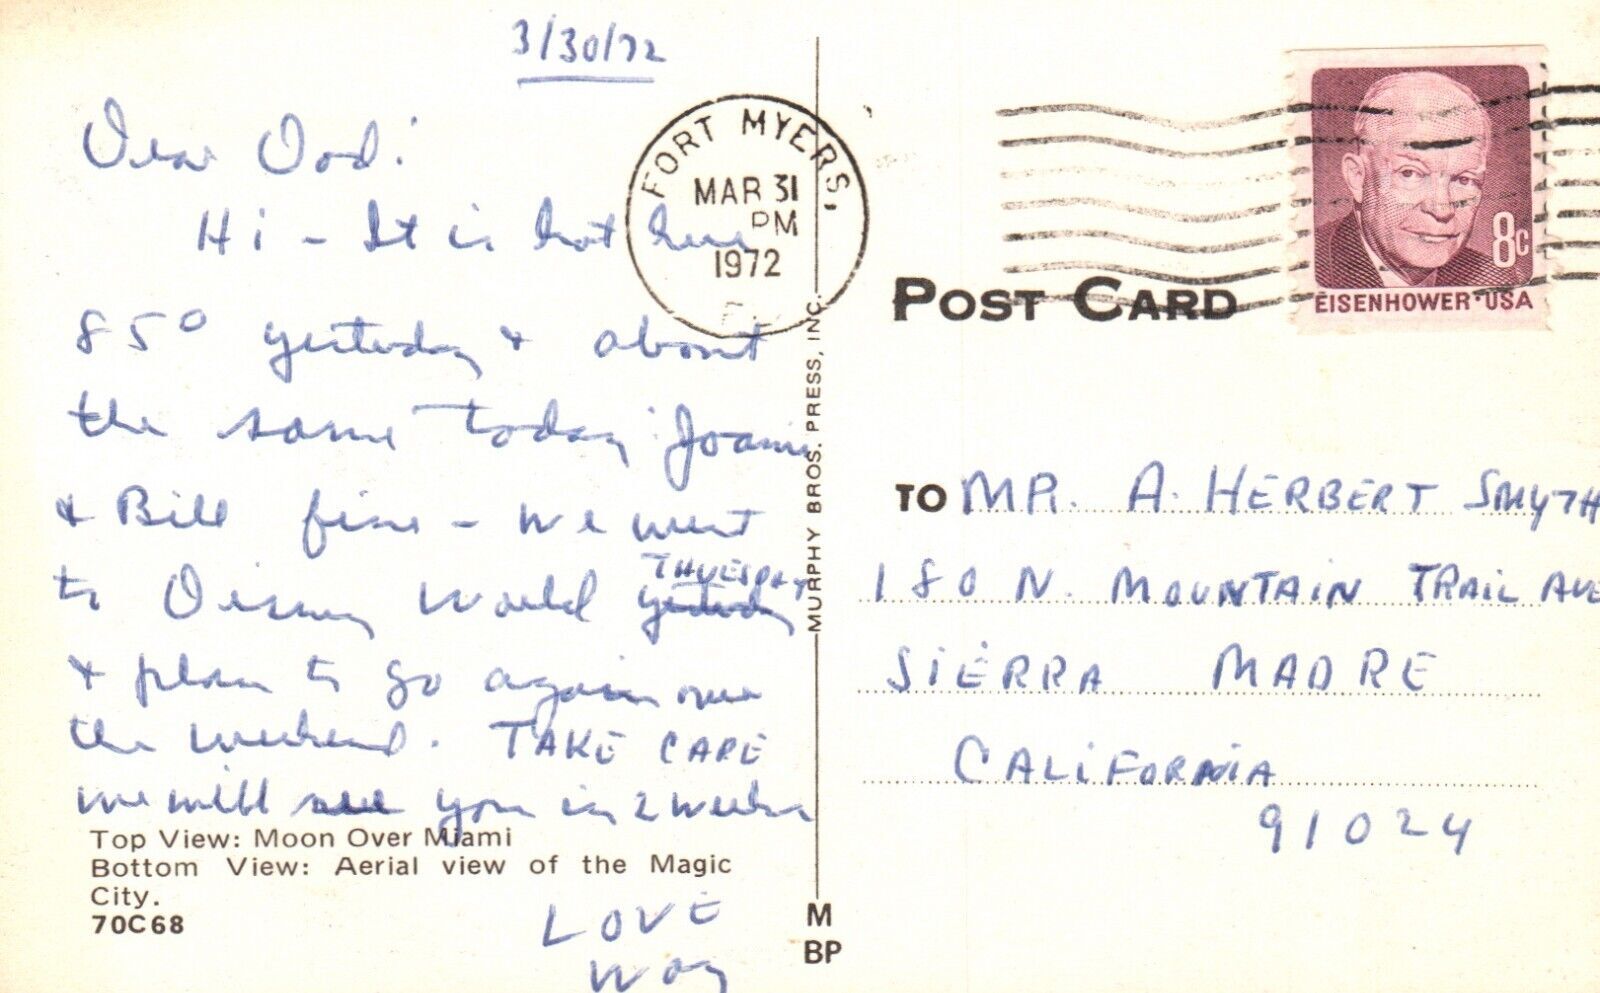 3/30/72
Dear Dad:
Hi - It is hot here
85° yesterday & about
the same today Joanie
& Bill fine - We went
to Disney World yesterday THUESDAY
& plan to go again over
the weekend. TAKE CARE
we will see you in 2 weeks
LOVE
Top View: Moon Over Miami
Bottom View: Aerial view of the Magic
City.
70C68
FORT MYERS,
MAR 31
PM
1972
MURPHY BROS. PRESS, INC.
M
BP
POST CARD
8c
EISENHOWER·USA
TO MR. A. HERBERT SMYTH
180 N. MOUNTAIN TRAIL AVE
SIERRA MADRE
CALIFORNIA
91024